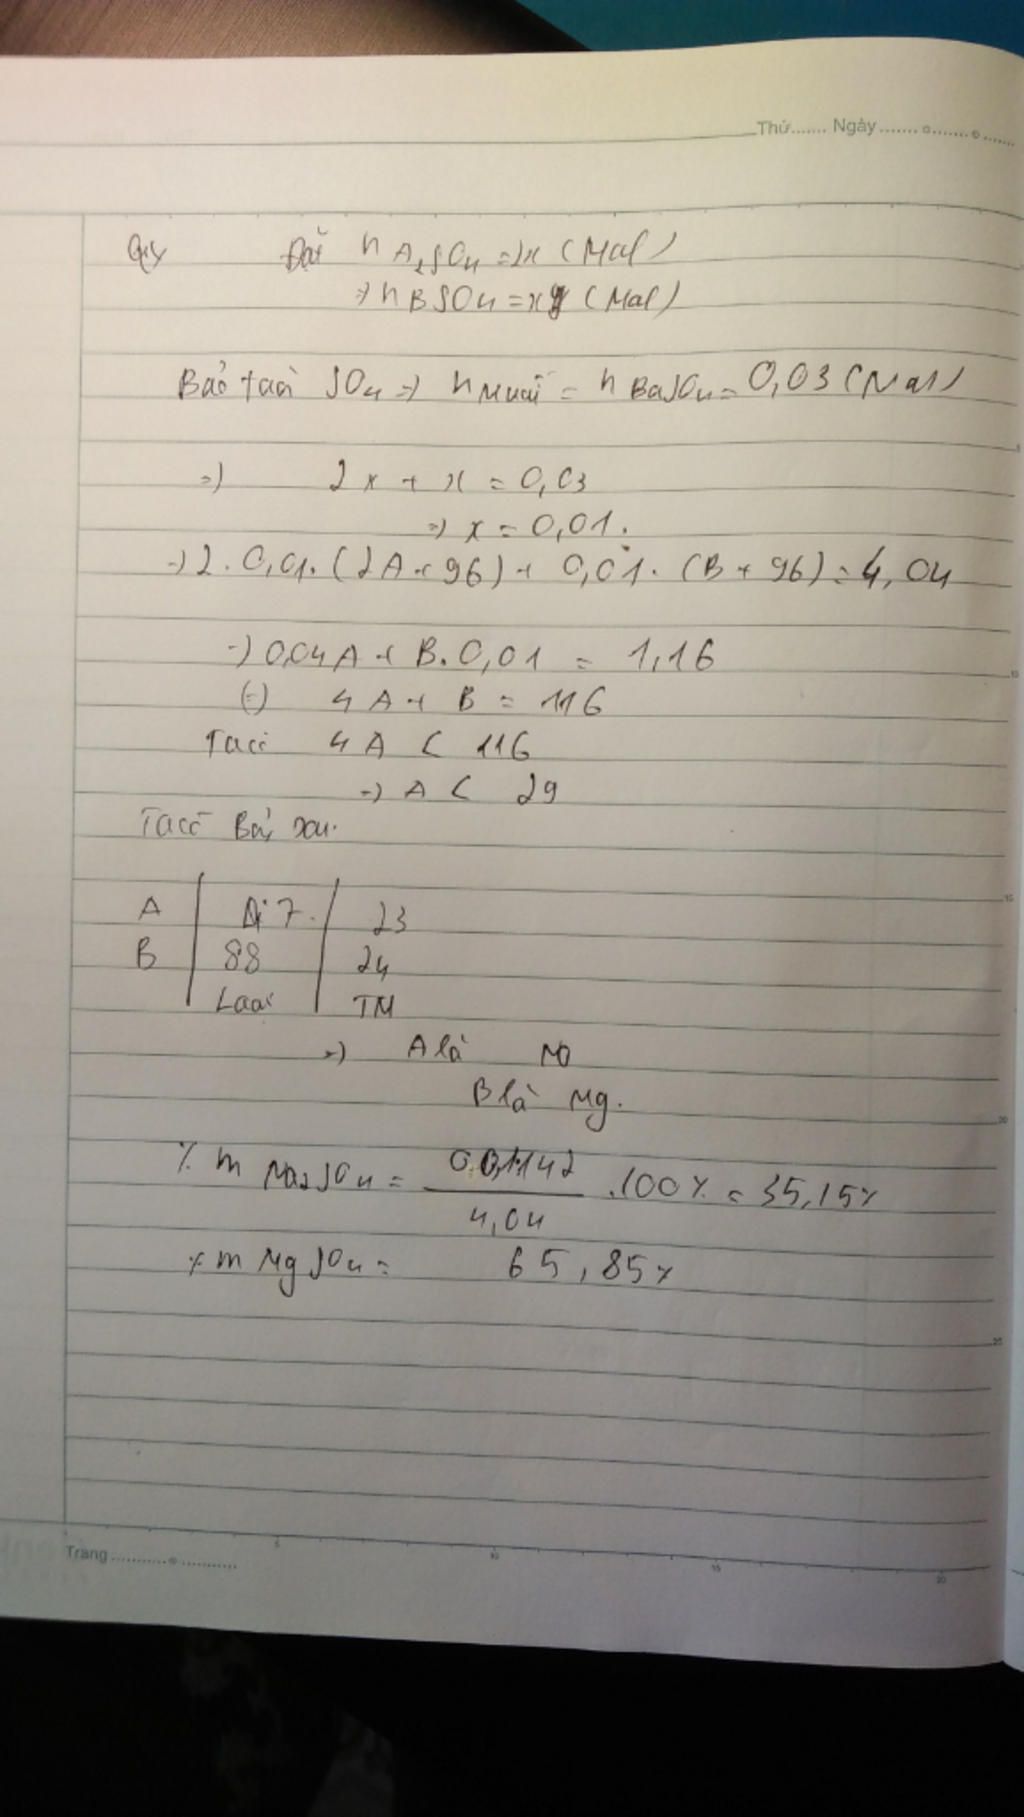 Thứ....... Ngày ....... o ....... o ......
Đặt n A₂SO₄ = 2x (Mol)
=> n BSO₄ = x (Mol)
Bảo toàn SO₄ => n Muối = n BaSO₄ = 0,03 (Mol)
=> 2x + x = 0,03
=> x = 0,01.
=> 2.0,01.(2A+96) + 0,01.(B+96) = 4,04
=> 0,04A + B.0,01 = 1,16
(=) 4A + B = 116
Ta có 4A < 116
=> A < 29
Ta có Bảng sau.
A | 7. | 23
B | 88 | 24
Loại | TM
=> A là Na
B là Mg.
% m Na₂SO₄ = 0,01.142 / 4,04 .100% = 35,15%
% m MgSO₄ = 65,85%
Trang ........... o ...........